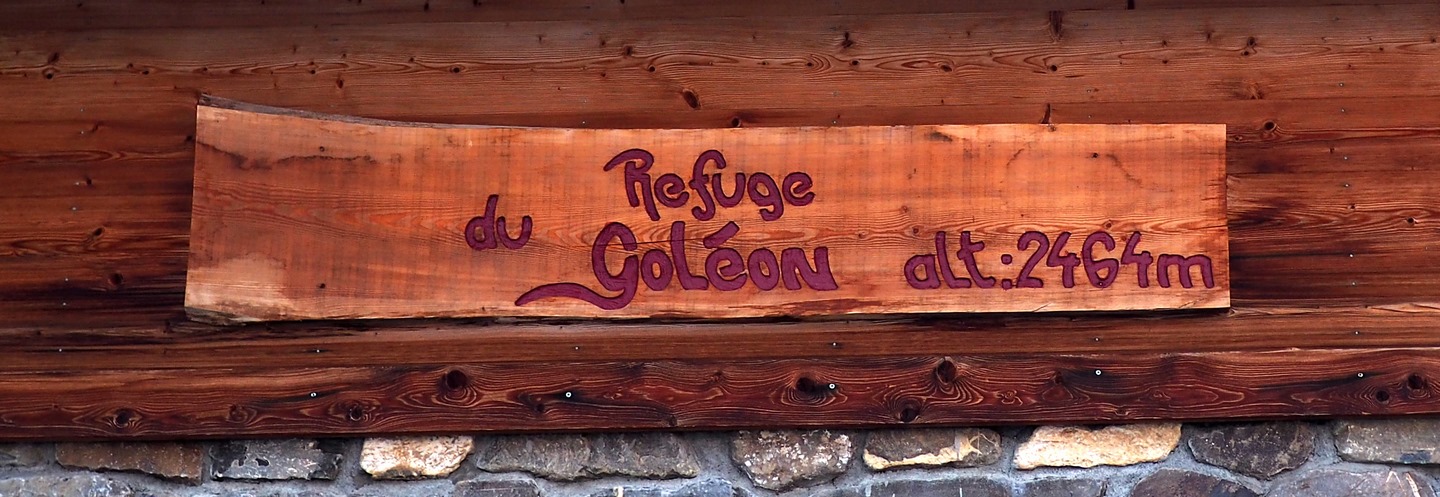 Refuge
du Goléon alt:2464m